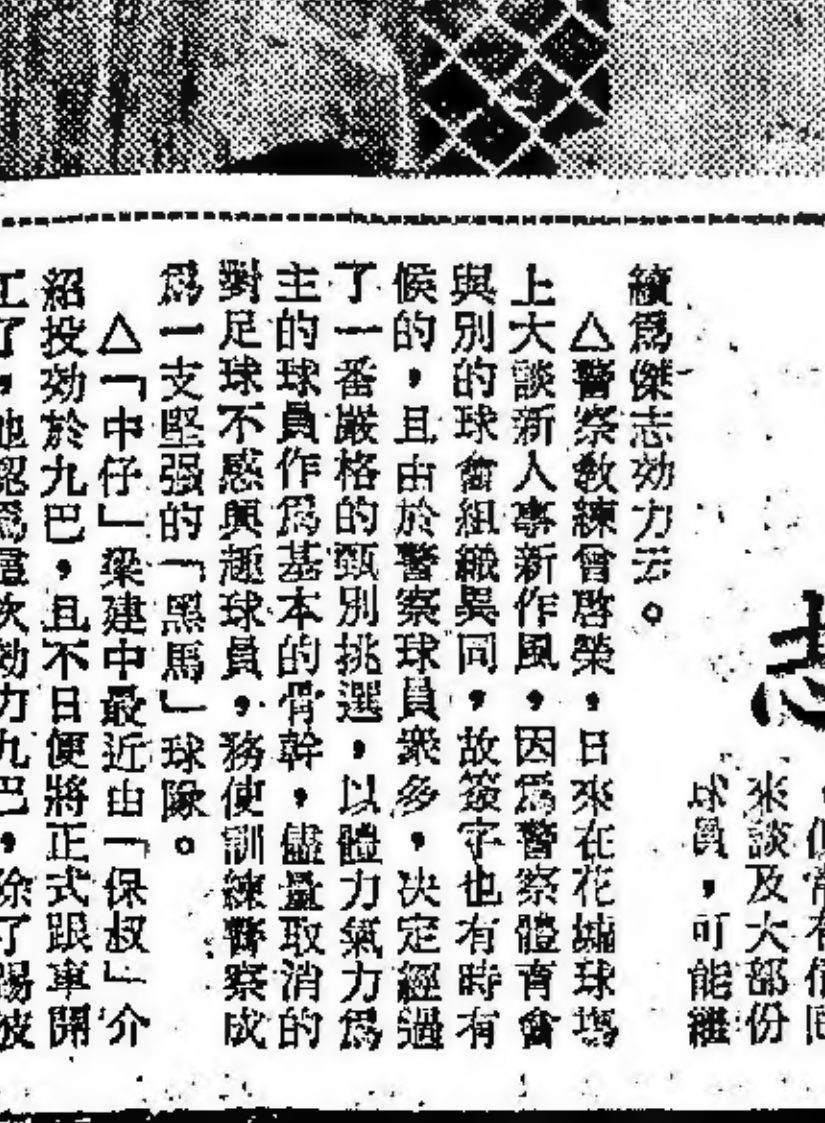 志
來談及大部份
球員，可能繼
續爲傑志効力云。
△警察敎練曾啓榮，日來在花墟球塲
上大談新人事新作風，因爲警察體育會
與別的球會組織異同，故簽字也有時有
候的，且由於警察球員衆多，决定經過
了一番嚴格的甄別挑選，以體力氣力爲
主的球員作爲基本的骨幹，儘量取消的
對足球不感興趣球員，務使訓練警察成
爲一支堅强的「黑馬」球隊。
△「中仔」梁建中最近由「保叔」介
紹投効於九巴，且不日便將正式跟車開
工了，他認爲這次効力九巴，除了踢波